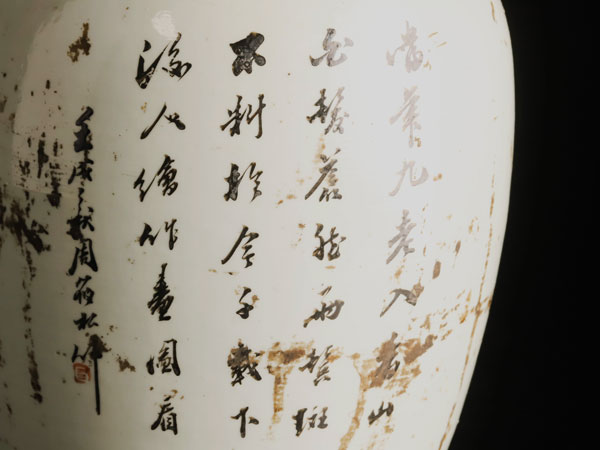 當年九老入香山
白髮蒼然兩鬢斑
不料於今千載下
人繪作畫圖看
壬戌之秋周筱松作